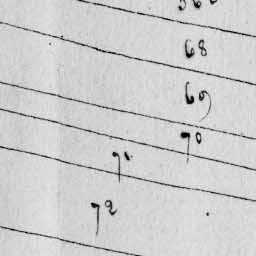 68
69
70
71
72